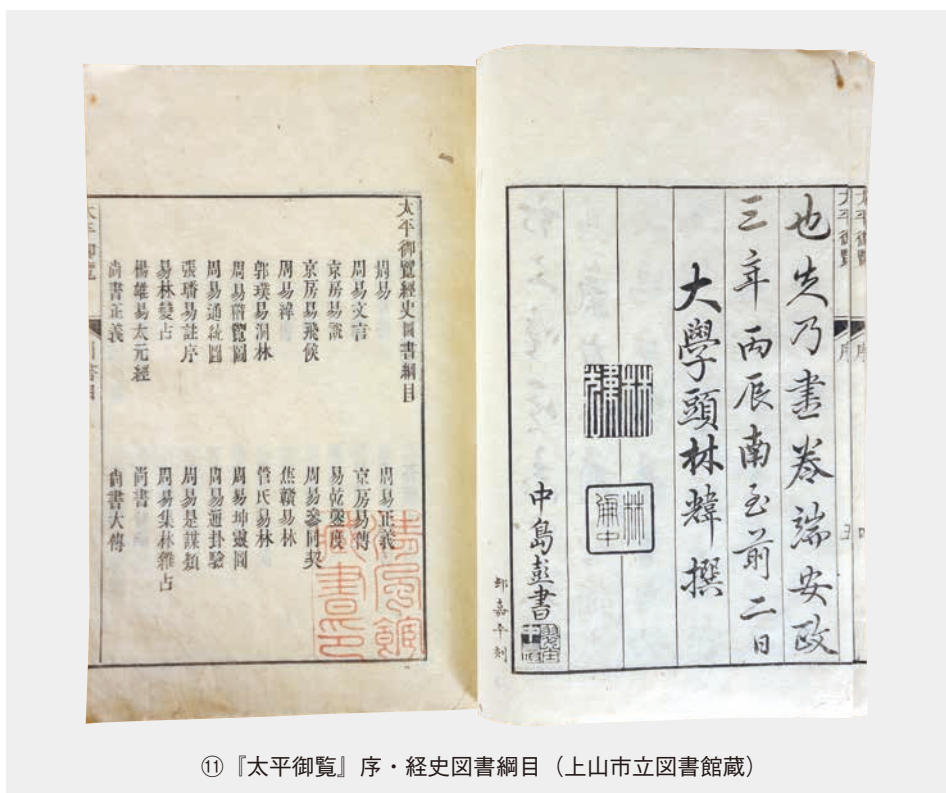 太平御覽 序
也乃書卷端安政
三年丙辰南至前二日
大學頭林韑撰
中島彭書
邨嘉平刻
太平御覽經史圖書綱目
周易 周易正義
周易文言 京房易傳
京房易 易乾鑿度
京房易飛候 周易參同契
周易緯 焦贛易林
郭璞易洞林 管氏易林
周易稽覽圖 周易坤靈圖
周易通統圖 周易通卦驗
張璠易註序 周易是謀類
易林變占 周易集林雜占
楊雄易太元經 尚書
尚書正義 尚書大傳
太平御覽
⑪『太平御覧』序・経史図書綱目（上山市立図書館蔵）